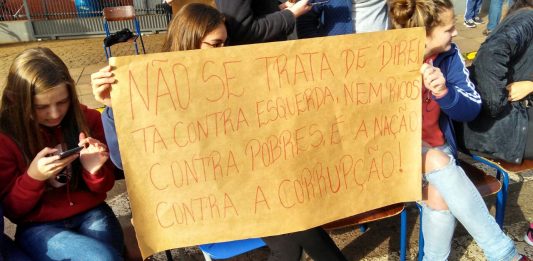 NÃO SE TRATA DE DIREI
TA CONTRA ESQUERDA, NEM RICOS
CONTRA POBRES, E A NAÇÃO
CONTRA A CORRUPÇÃO!